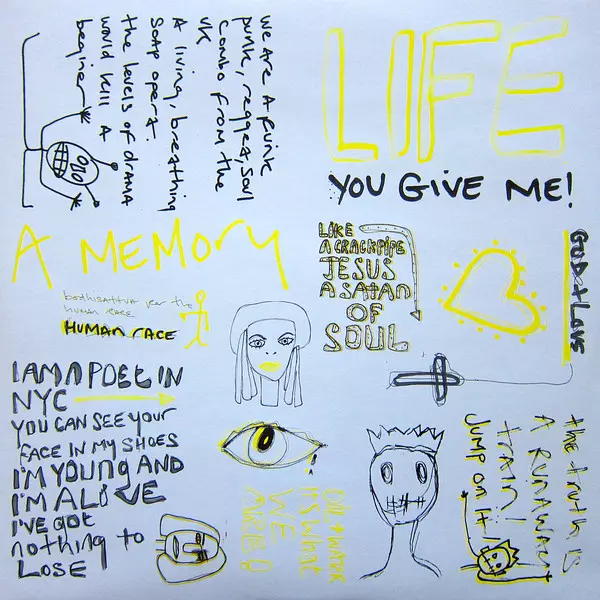 we are a funk
punk, reggea, soul
combo from the
UK
A living, breathing
soap opera.
the levels of drama
would kill A
beginer
LIFE
YOU GIVE ME!
A MEMORY
LIKE
A CRACKPIPE
JESUS
A SATAN
OF
SOUL
GOD + LOVE
bodhisattva for the
human race
HUMAN RACE
I AM A POET IN
NYC
YOU CAN SEE YOUR
FACE IN MY SHOES
I'M YOUNG AND
I'M ALIVE
I'VE GOT
nothing to
LOSE
IT'S WHAT
WE
ARE!
the truth is
A RUNAWAY
train!
JUMP ON IT!